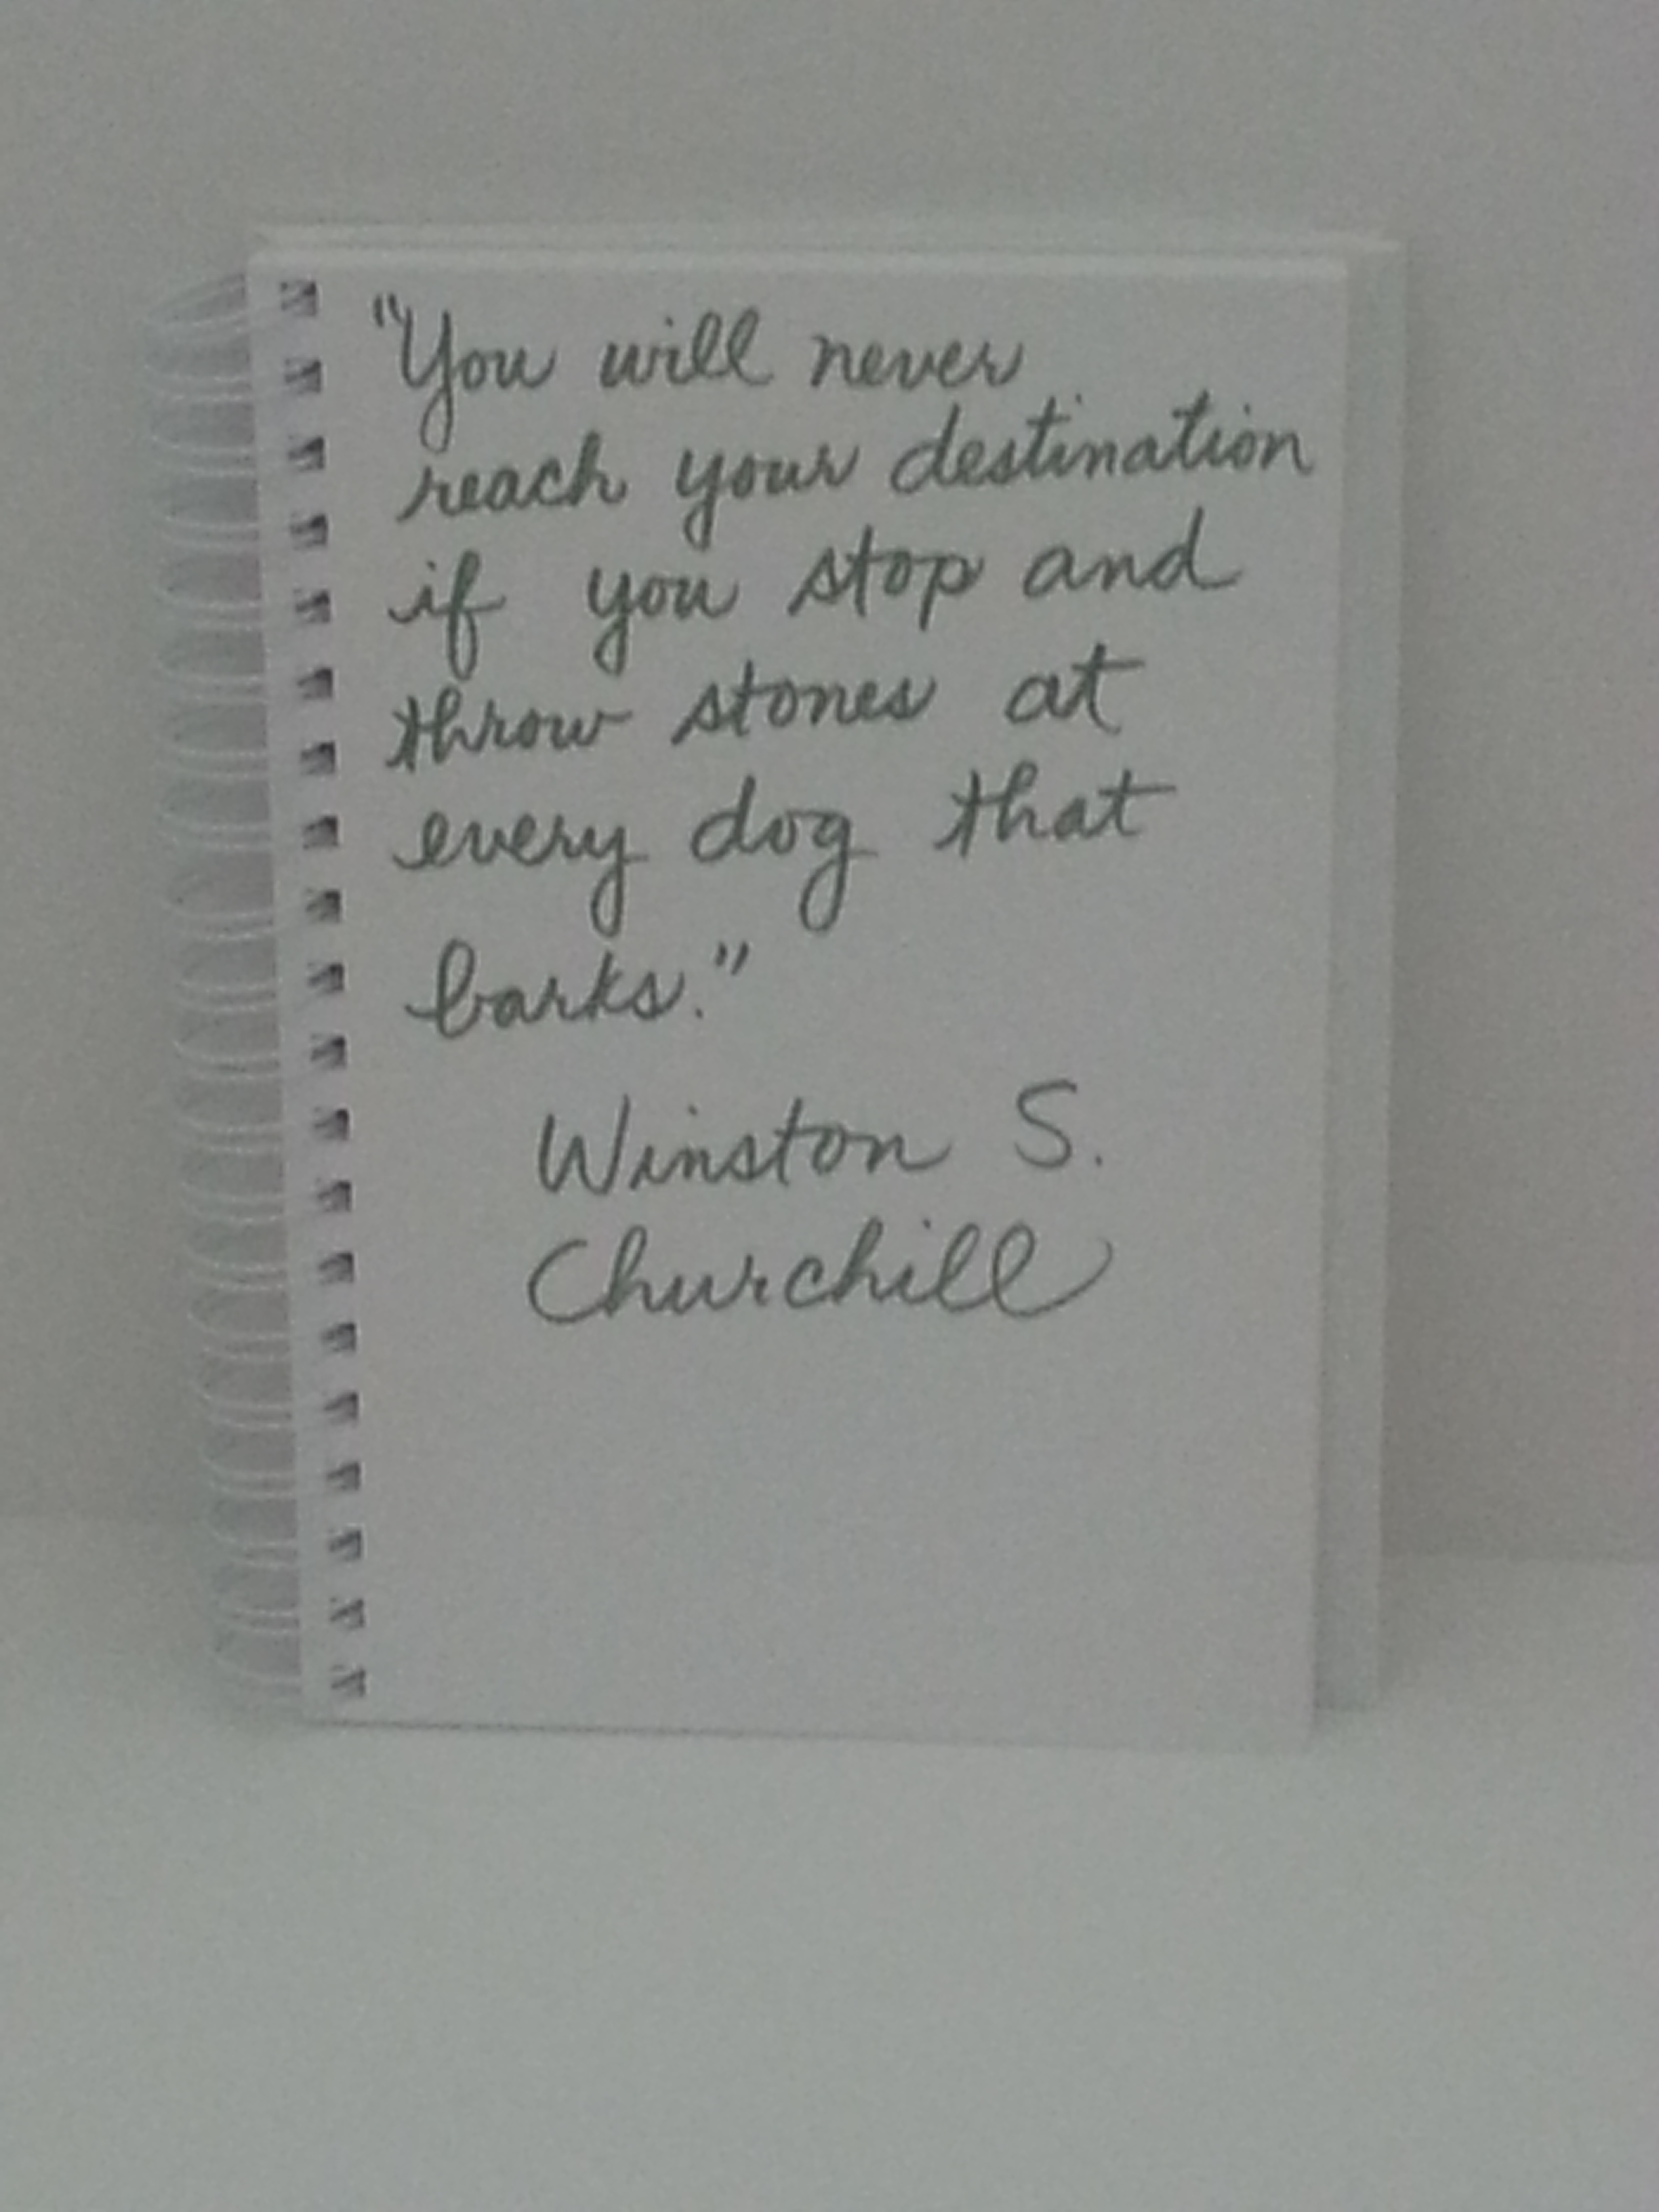 "You will never
reach your destination
if you stop and
throw stones at
every dog that
barks."
Winston S.
Churchill